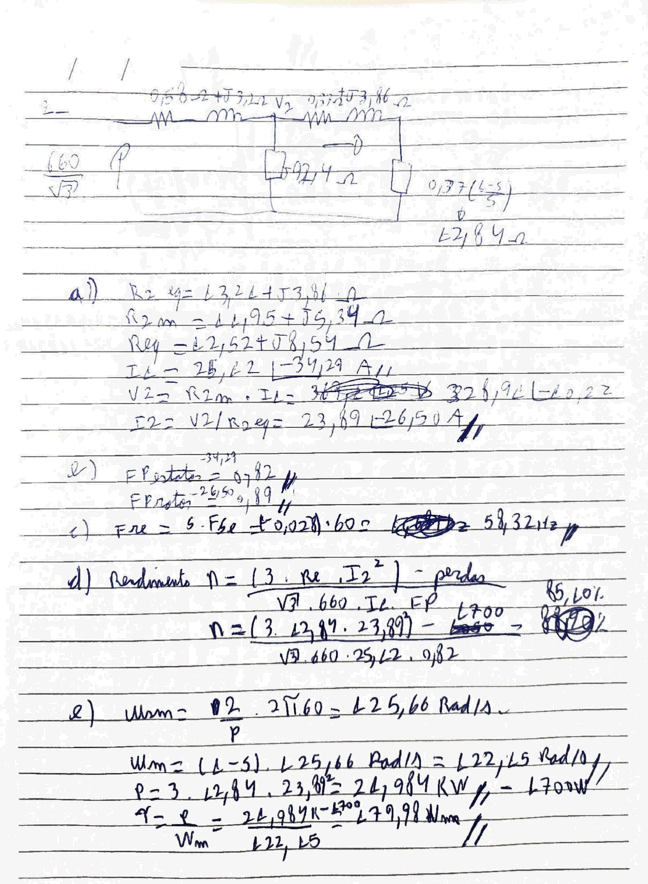 0,58-2+J3,22 V2 J3,86 Ω
2-
660/√3
92,4 Ω
0,37(1-s/s)
12,84 Ω
a)) R2 eq= 13,21+J3,86 Ω
R2m = 11,95+J5,34 Ω
Req = 12,52+J8,54 Ω
I1 = 25,12 ∟-34,29 A//
V2 = R2m . I1 = 328,91 ∟-10,22
I2= V2/R2eq= 23,89 ∟-26,50 A//
-34,29
FPestator = 0,82 //
FProtor -26,50 = 0,89 //
c) Fre = s.Fse 0,028).60= 58,32Hz //
d) Rendimento n = (3 . Re . I2²) - perdas
√3 . 660 . I1 . FP
85,10%
n = (3. 12,84 . 23,89²) - 1700 =
√3 .660 . 25,12 . 0,82
e) Wsm = 2/P . 2π60 = 125,66 Rad/s.
Wm = (1-s). 125,66 Rad/s = 122,15 Rad/s //
P = 3. 12,84 . 23,89² = 21,984 KW // - 1700W
P/Wm = 21,984K-1700/122,15 179,98 //